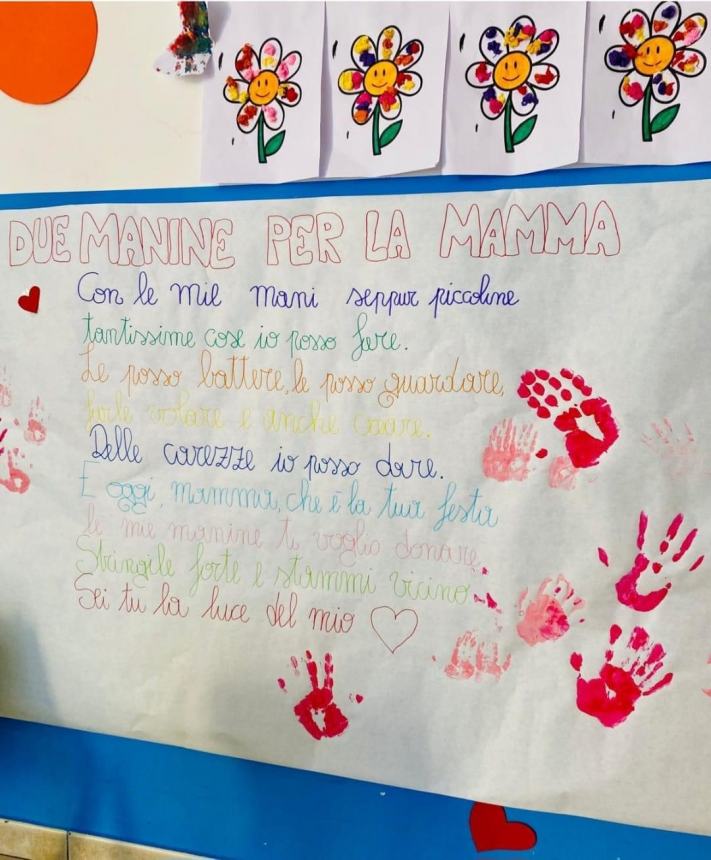 DUE MANINE PER LA MAMMA
Con le mie mani seppur piccoline
tantissime cose io posso fare.
Le posso battere, le posso guardare,
farle volare e anche
Delle carezze io posso dare.
E oggi, mamma, che è la tua festa
le mie manine ti voglio donare.
Stringile forte e stammi vicino
Sei tu la luce del mio